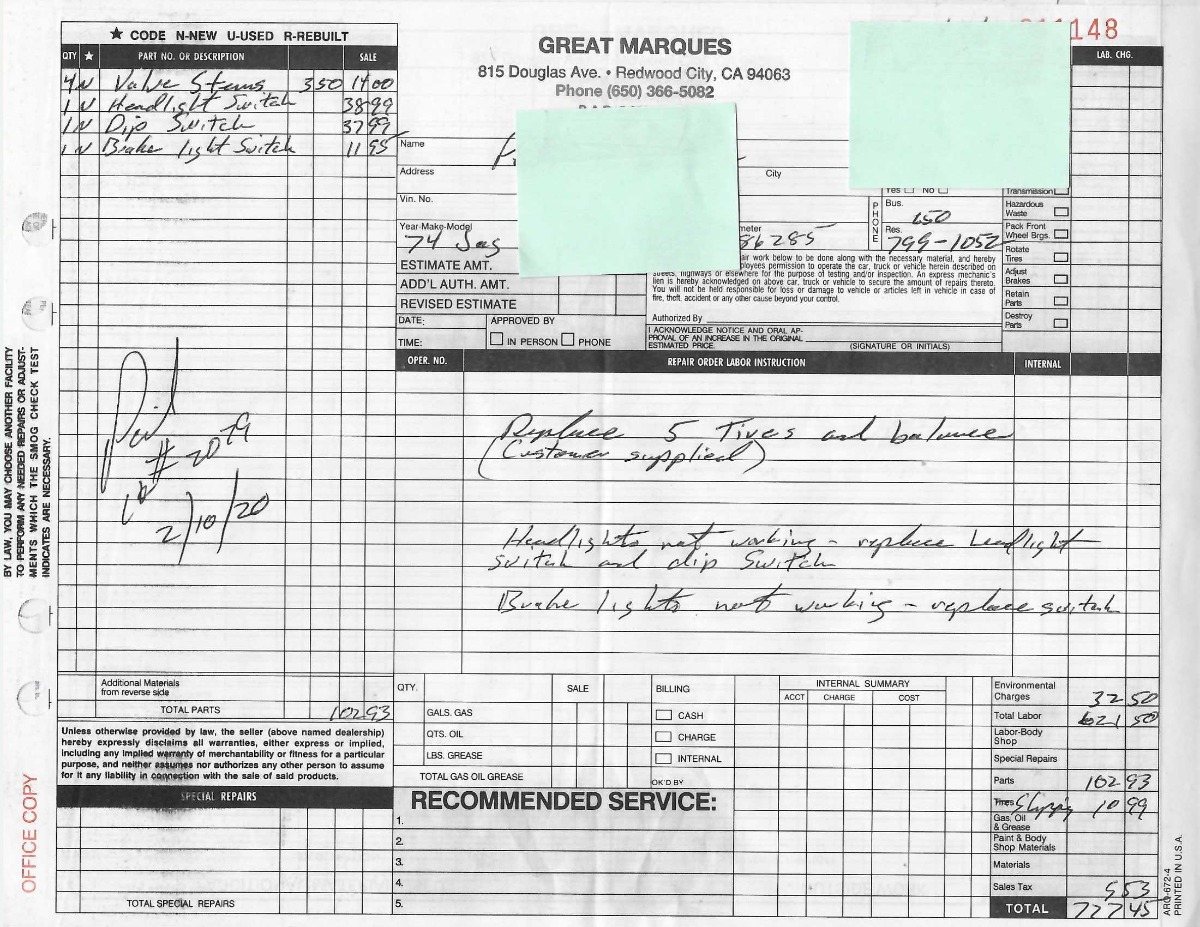 ★ CODE N-NEW U-USED R-REBUILT
QTY ★ PART NO. OR DESCRIPTION SALE
4 N Valve Stems 3 50 14 00
1 N Headlight Switch 38 99
1 N Dip Switch 37 99
1 N Brake light Switch 11 95
GREAT MARQUES
815 Douglas Ave. • Redwood City, CA 94063
Phone (650) 366-5082
148
LAB. CHG.
Name
Address
City
Vin. No.
Year-Make-Model
74 Jag
86285
Yes No
PHONE
Bus.
650
Res.
799-1052
Transmission
Hazardous Waste
Pack Front Wheel Brgs.
Rotate Tires
Adjust Brakes
Retain Parts
Destroy Parts
ESTIMATE AMT.
ADD'L AUTH. AMT.
REVISED ESTIMATE
DATE:
TIME:
APPROVED BY
IN PERSON PHONE
air work below to be done along with the necessary material, and hereby
ployees permission to operate the car, truck or vehicle herein described on
streets, highways or elsewhere for the purpose of testing and/or inspection. An express mechanic's
lien is hereby acknowledged on above car, truck or vehicle to secure the amount of repairs thereto.
You will not be held responsible for loss or damage to vehicle or articles left in vehicle in case of
fire, theft, accident or any other cause beyond your control.
Authorized By
I ACKNOWLEDGE NOTICE AND ORAL AP-
PROVAL OF AN INCREASE IN THE ORIGINAL
ESTIMATED PRICE.
(SIGNATURE OR INITIALS)
OPER. NO. REPAIR ORDER LABOR INSTRUCTION INTERNAL
Replace 5 Tires and balance
(Customer supplied)
Headlights not working - replace headlight
switch and dip Switch
Brake lights not working - replace switch
Paid
# 2079
2/10/20
BY LAW, YOU MAY CHOOSE ANOTHER FACILITY
TO PERFORM ANY NEEDED REPAIRS OR ADJUST-
MENTS WHICH THE SMOG CHECK TEST
INDICATES ARE NECESSARY.
OFFICE COPY
Additional Materials
from reverse side
TOTAL PARTS 102 93
Unless otherwise provided by law, the seller (above named dealership)
hereby expressly disclaims all warranties, either express or implied,
including any implied warranty of merchantability or fitness for a particular
purpose, and neither assumes nor authorizes any other person to assume
for it any liability in connection with the sale of said products.
SPECIAL REPAIRS
TOTAL SPECIAL REPAIRS
QTY. SALE
GALS. GAS
QTS. OIL
LBS. GREASE
TOTAL GAS OIL GREASE
BILLING
CASH
CHARGE
INTERNAL
OK'D BY
INTERNAL SUMMARY
ACCT CHARGE COST
RECOMMENDED SERVICE:
1.
2.
3.
4.
5.
Environmental Charges 32 50
Total Labor 621 50
Labor-Body Shop
Special Repairs
Parts 102 93
Tires Shipping 10 99
Gas, Oil & Grease
Paint & Body Shop Materials
Materials
Sales Tax 9 53
TOTAL 777 45
ARO-672-4
PRINTED IN U.S.A.